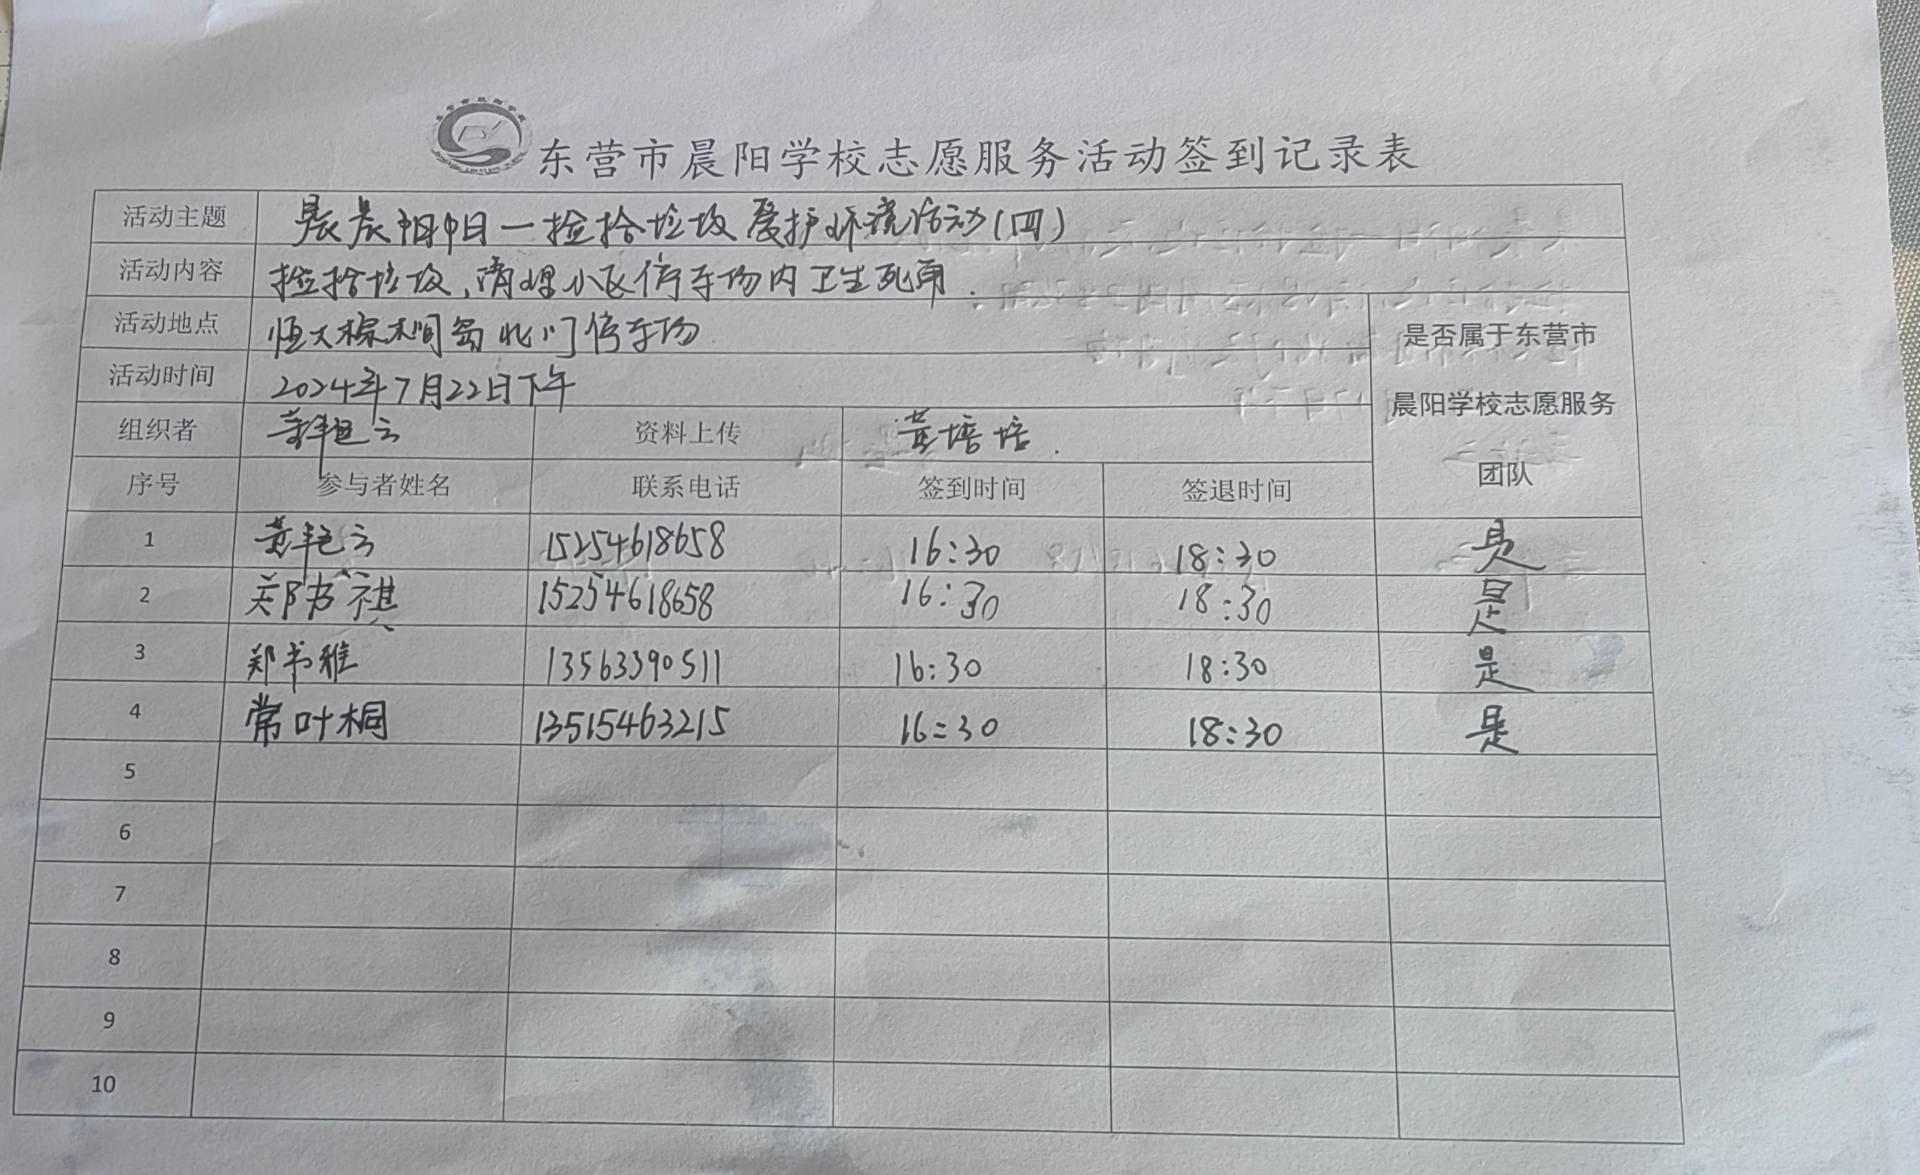 东营市晨阳学校志愿服务活动签到记录表
活动主题 晨晨阳阳一捡拾垃圾 爱护环境活动(四)
活动内容 捡拾垃圾,清理小区停车场内卫生死角.
活动地点 恒大棕榈岛北门停车场
是否属于东营市
晨阳学校志愿服务
团队
活动时间 2024年7月22日下午
组织者 黄艳云 资料上传 黄培培.
序号 参与者姓名 联系电话 签到时间 签退时间
1 黄艳云 15254618658 16:30 18:30 是
2 郑书祺 15254618658 16:30 18:30 是
3 郑书雅 13563390511 16:30 18:30 是
4 常叶桐 13515463215 16:30 18:30 是
5
6
7
8
9
10